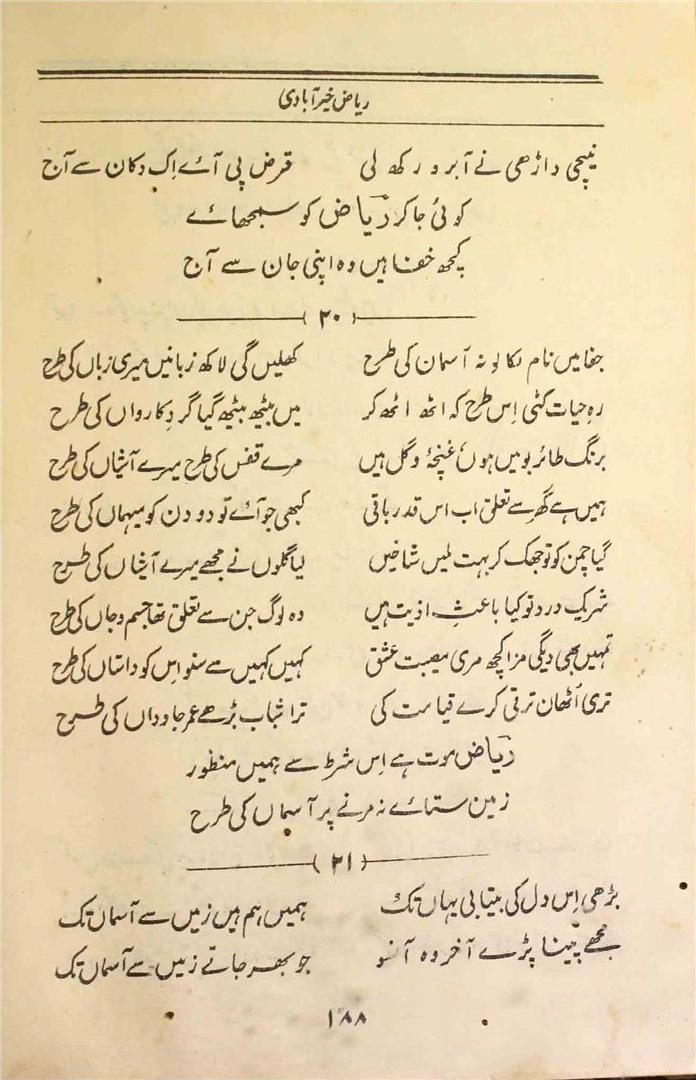 ریاض خیرآبادی
نیچی داڑھی نے آبرو رکھ لی قرض پی آئے اِک دکان سے آج
کوئی جا کر ریاضؔ کو سمجھائے
کچھ خفا ہیں وہ اپنی جان سے آج
(۲۰)
جفا میں نام نکالو نہ آسمان کی طرح کھلیں گی لاکھ زبانیں میری زباں کی طرح
رہِ حیات کٹی اِس طرح کہ اٹھ اٹھ کر میں بیٹھ بیٹھ گیا گردِ کارواں کی طرح
برنگ طائر بو میں ہوں غنچۂ و گل ہیں مرے قفس کی طرح میرے آشیاں کی طرح
ہمیں ہے گھر سے تعلق اب اس قدر باقی کبھی جو آئے تو دو دن کو میہماں کی طرح
گیا چمن کو تو جھک کر بہت ملیں شاخیں لیا گلوں نے مجھے میرے آشیاں کی طرح
شریک درد تو کیا باعثِ اذیت ہیں وہ لوگ جن سے تعلق تھا جسم و جاں کی طرح
تمہیں بھی دیگی مزا کچھ مری مصیبت عشق کہیں کہیں سے سنو اِس کو داستاں کی طرح
تری اُٹھان ترقی کرے قیامت کی ترا شباب بڑھے عمر جاوداں کی طرح
ریاضؔ موت ہے اِس شرط سے ہمیں منظور
زمین ستائے نہ مرنے پر آسماں کی طرح
(۲۱)
بڑھی اِس دل کی بیتابی یہاں تک ہمیں ہم ہیں زمیں سے آسماں تک
مجھے پینا پڑے آخر وہ آنسو جو بھر جاتے زمیں سے آسماں تک
۱۸۸